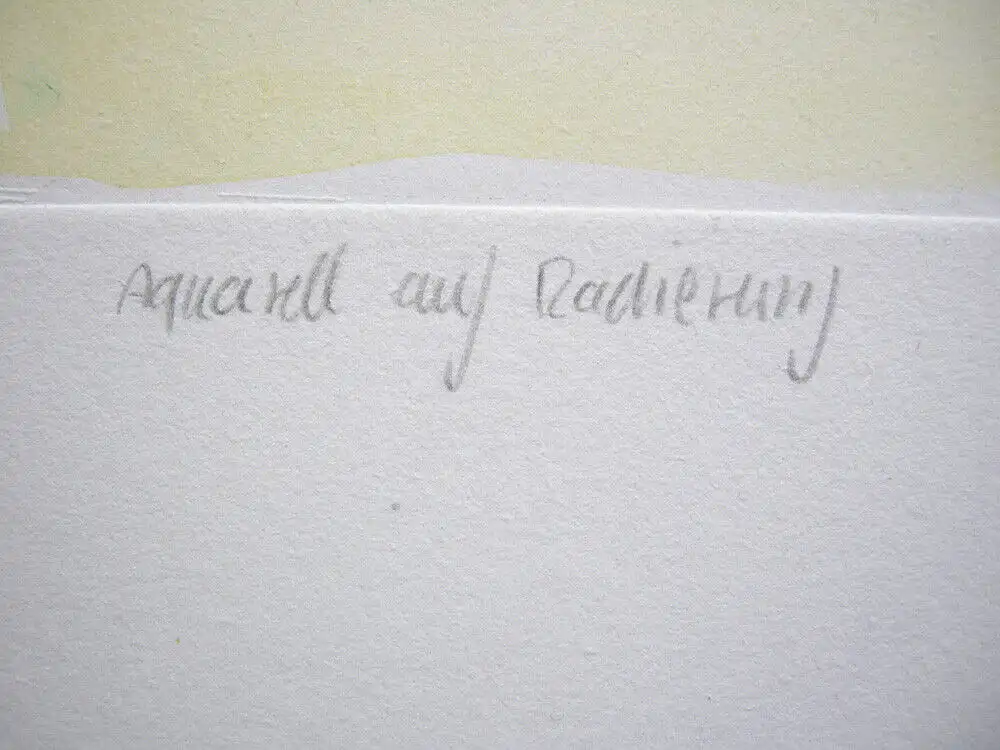 Aquarell auf Radierung